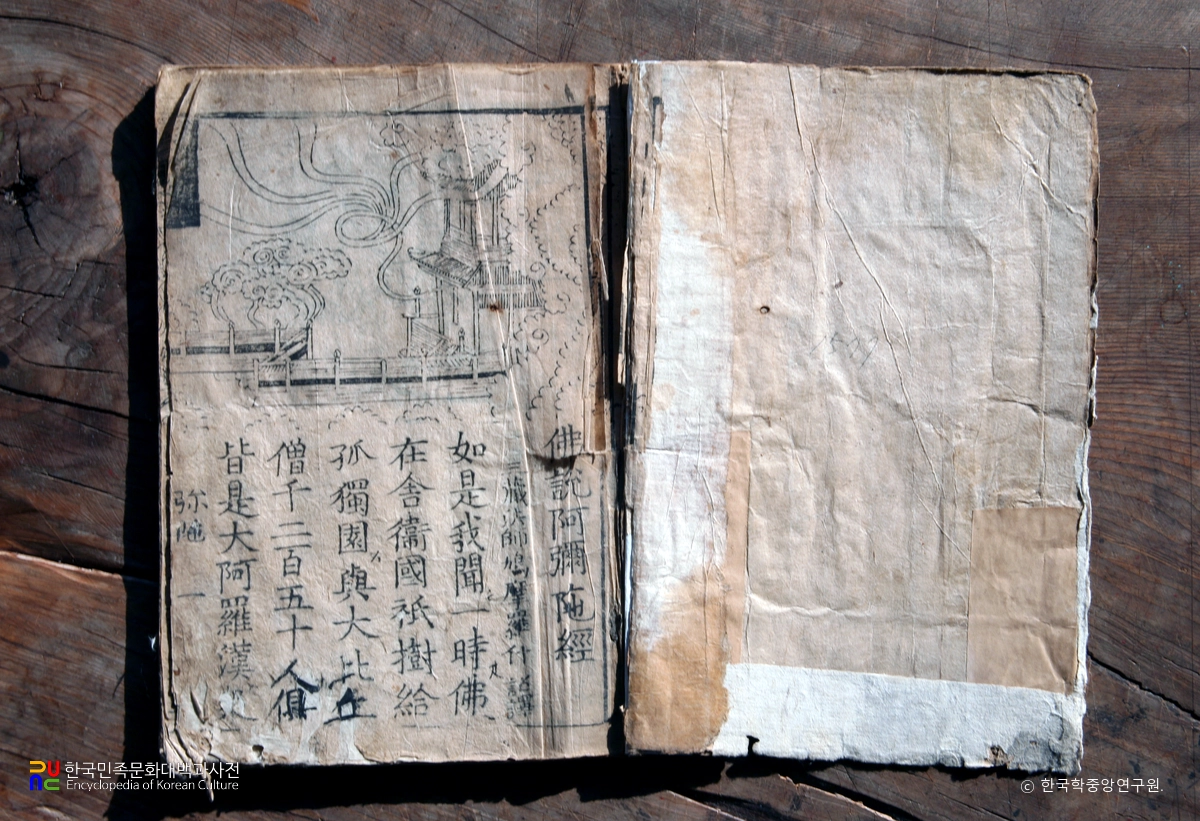 佛說阿彌陁經
三藏法師鳩摩羅什 譯
如是我聞一時佛
在舍衛國祇樹給
孤獨園與大比丘
僧千二百五十人俱
皆是大阿羅漢
弥陁 一
한국민족문화대백과사전
Encyclopedia of Korean Culture
© 한국학중앙연구원.